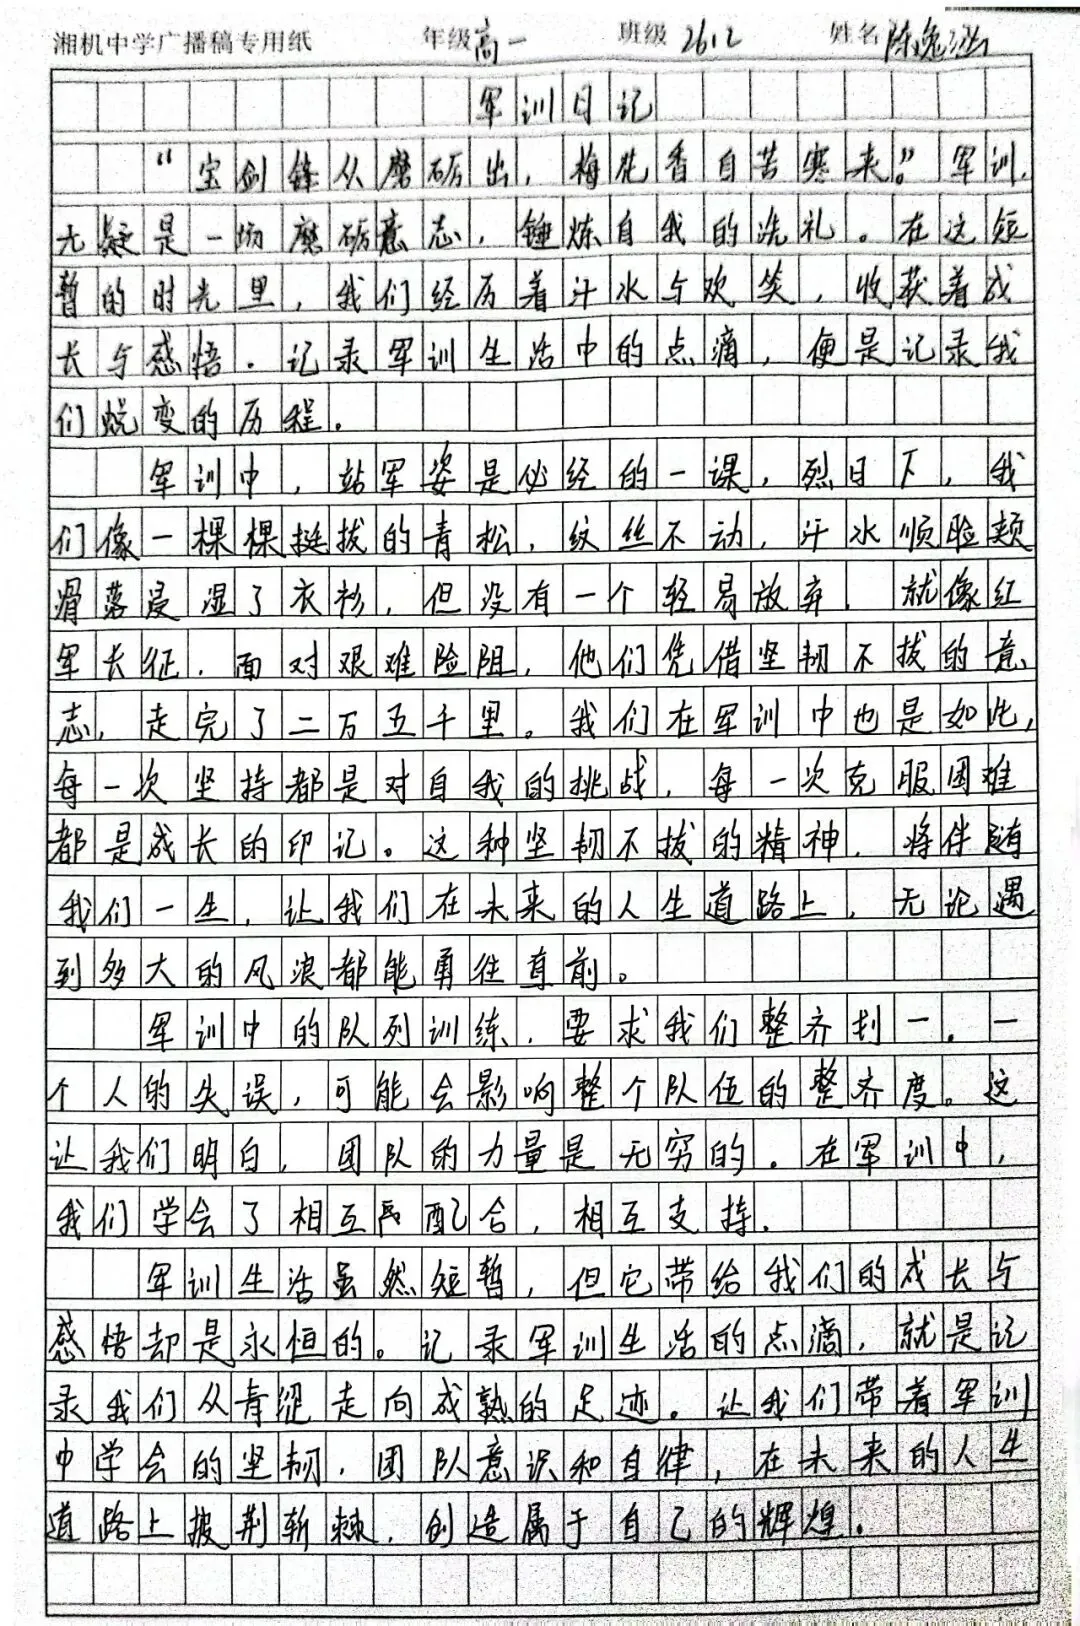 湘机中学广播稿专用纸 年级高一 班级2612 姓名陈逸
军训日记
“宝剑锋从磨砺出，梅花香自苦寒来。”军训，
无疑是一场磨砺意志，锤炼自我的洗礼。在这短
暂的时光里，我们经历着汗水与欢笑，收获着成
长与感悟．记录军训生活中的点滴，便是记录我
们蜕变的历程。
军训中，站军姿是必经的一课，烈日下，我
们像一棵棵挺拔的青松，纹丝不动，汗水顺脸颊
滑落浸湿了衣衫，但没有一个轻易放弃．就像红
军长征，面对艰难险阻，他们凭借坚韧不拔的意
志，走完了二万五千里。我们在军训中也是如此，
每一次坚持都是对自我的挑战，每一次克服困难
都是成长的印记。这种坚韧不拔的精神，将伴随
我们一生，让我们在未来的人生道路上，无论遇
到多大的风浪都能勇往直前。
军训中的队列训练，要求我们整齐划一。一
个人的失误，可能会影响整个队伍的整齐度。这
让我们明白，团队的力量是无穷的．在军训中，
我们学会了相互配合，相互支持．
军训生活虽然短暂，但它带给我们的成长与
感悟却是永恒的。记录军训生活的点滴，就是记
录我们从青涩走向成熟的足迹。让我们带着军训
中学会的坚韧．团队意识和自律，在未来的人生
道路上披荆斩棘，创造属于自己的辉煌．